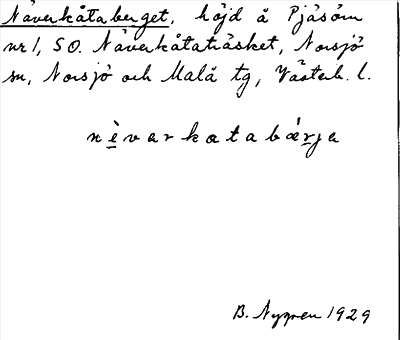 Näverkåtaberget, höjd å Pjäsörn
nr 1, SO. Näverkåtaträsket, Norsjö
sn, Norsjö och Malå tg, Västerb. l.
nèvarkatabárja
B. Nygren 1929